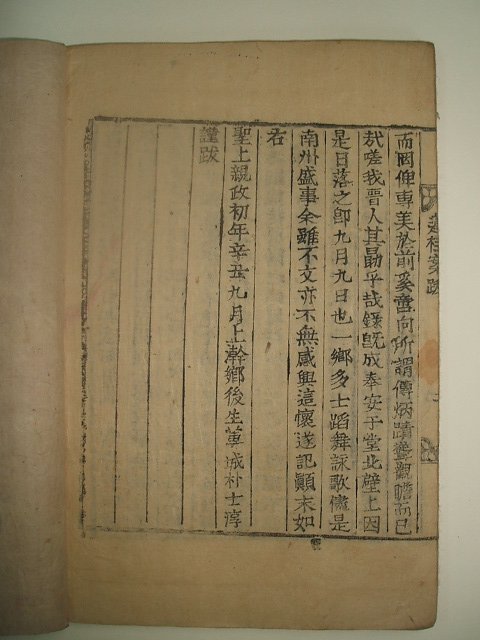 蓮桂案跋
而固俾專美於前奚啻向所謂傳炳蹟聳觀瞻而已
哉嗟我晋人其勗乎哉錄旣成奉安于堂北壁上因
是日落之卽九月九日也一鄕多士蹈舞詠歌儘是
南州盛事余雖不文亦不無感興這懷遂記顚末如
右
聖上親政初年辛丑九月上澣鄕後生 城朴士淳
謹跋